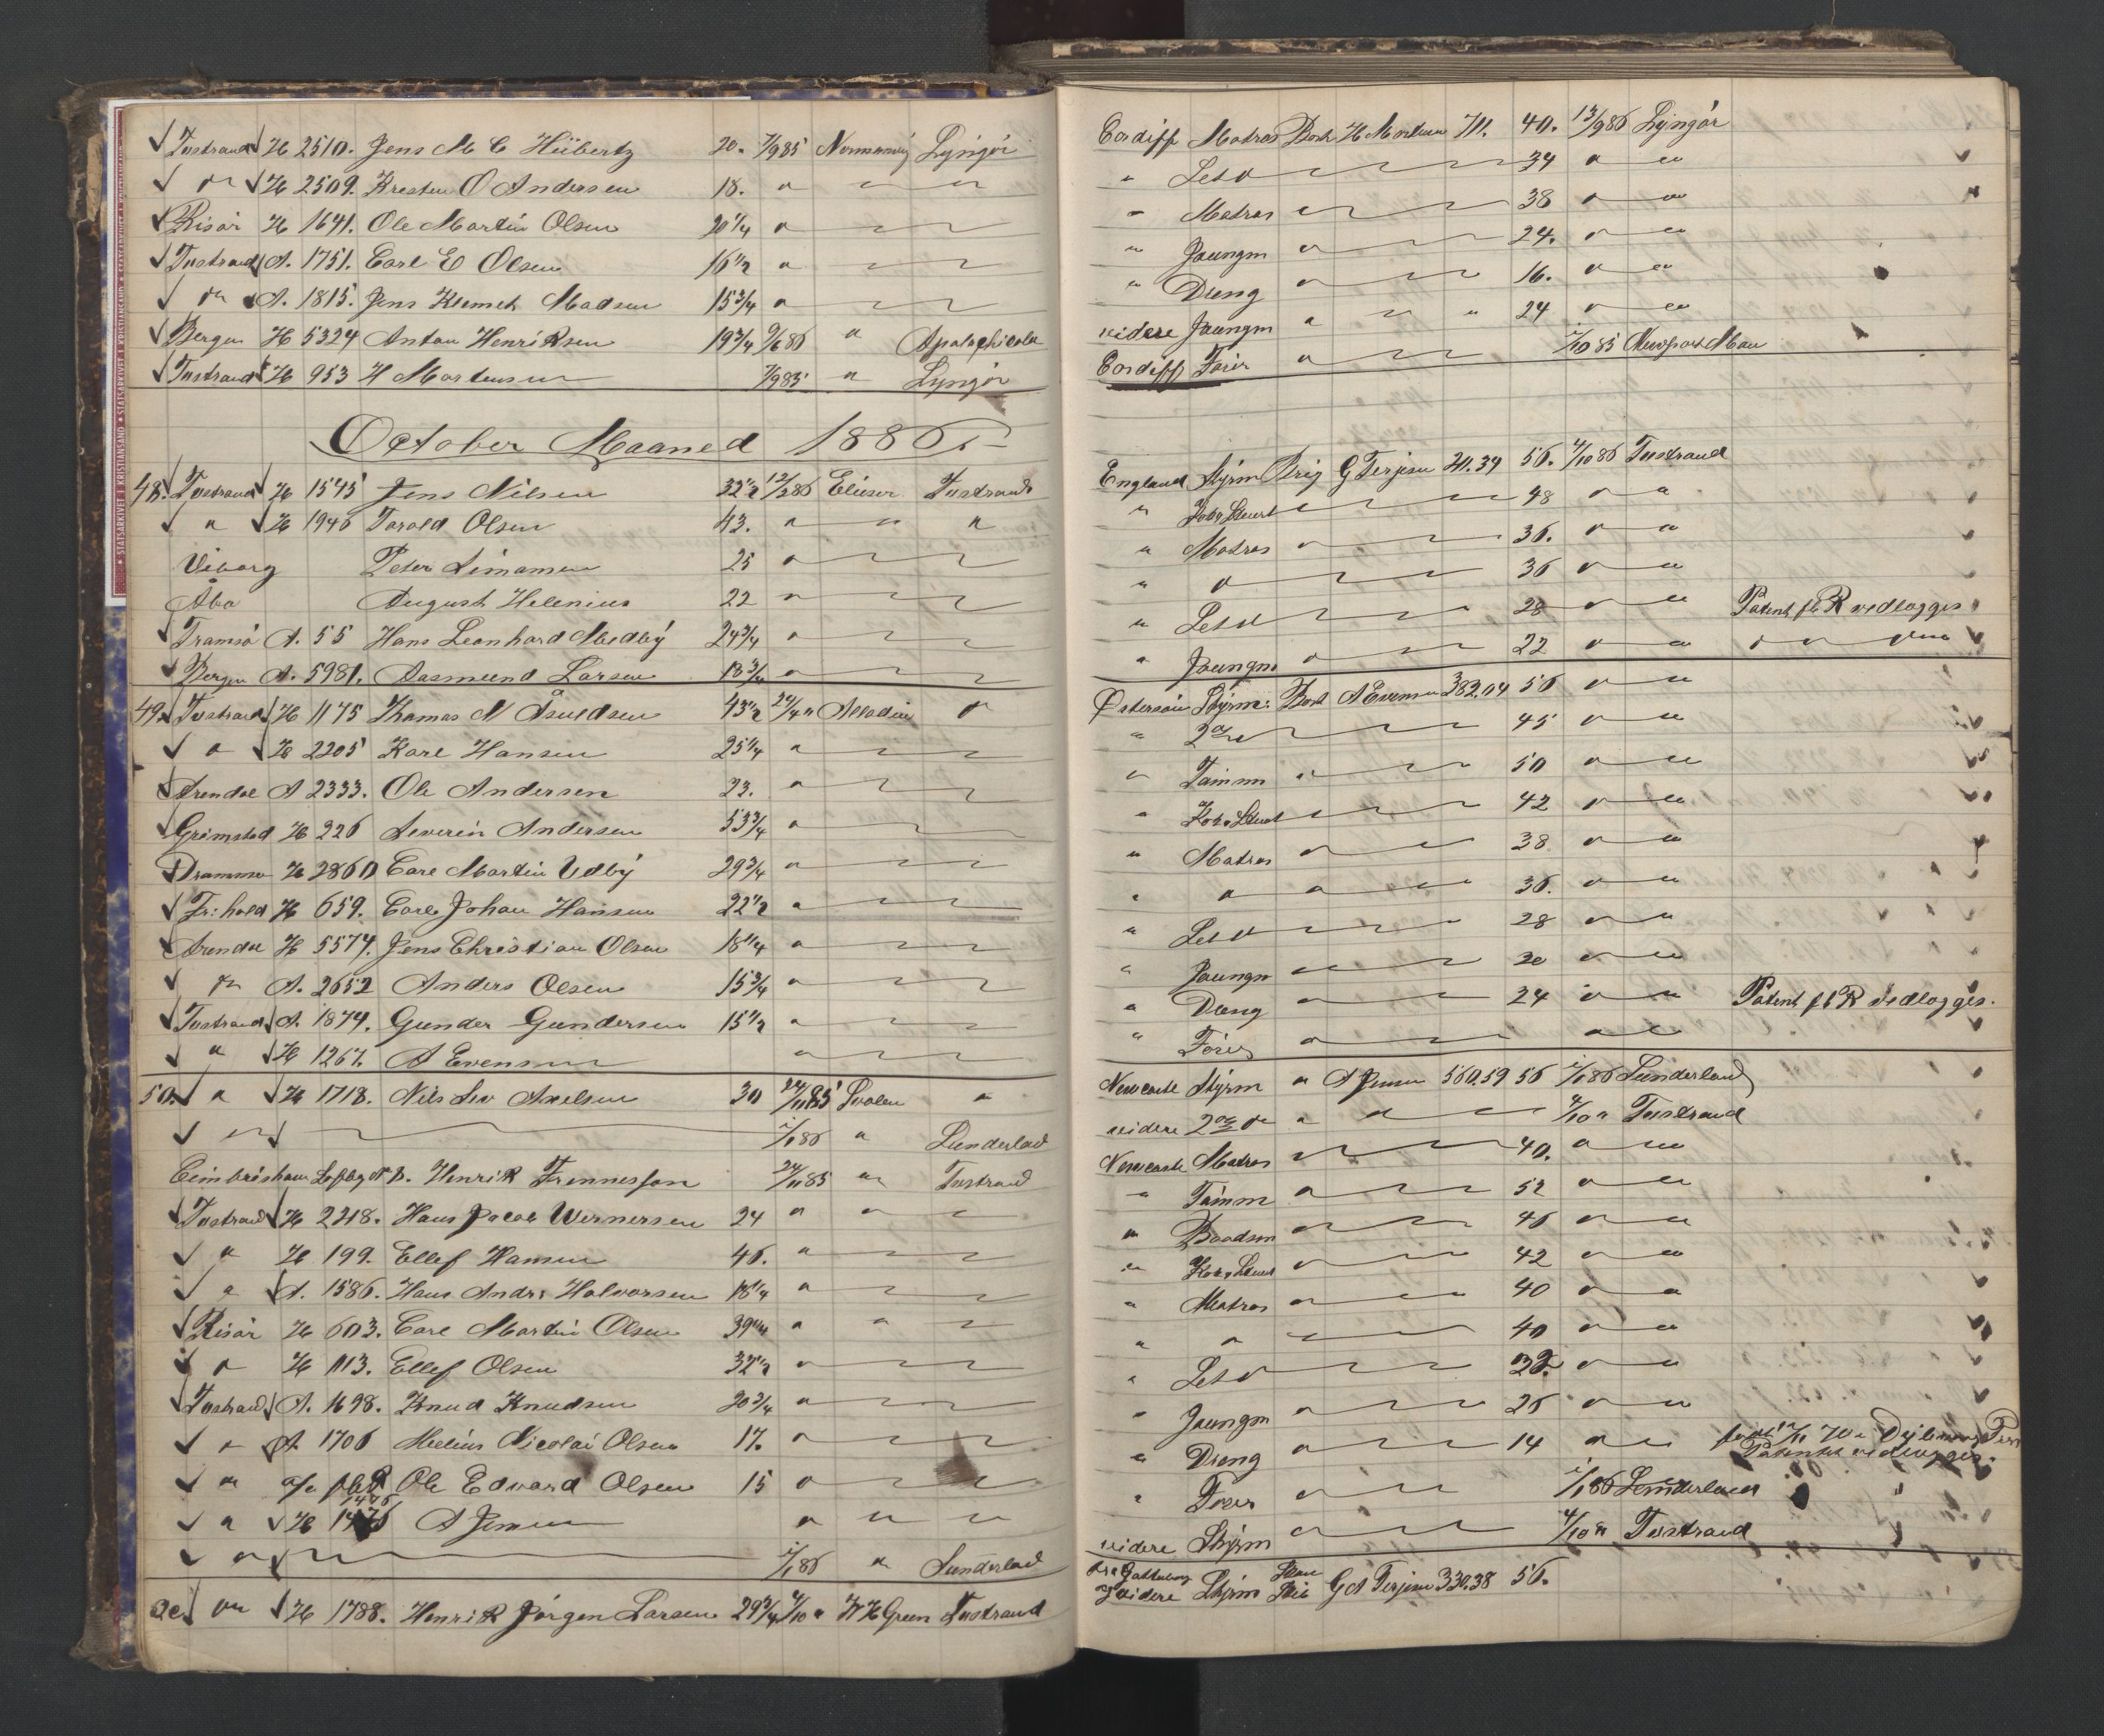 Tvstrand H 2510. Jens M C Hübertz 20. 7/9 85 Normanvig Lyngör
" H 2509. Kresten O Andersen 18. " " "
Risör H 1641. Ole Martin Olsen 20 1/4 "
Tvstrand A. 1751. Carl E Olsen 16 1/2 "
" A. 1815. Jens Klemet Madsen 15 3/4 "
Bergen H 5324 Anton Henriksen 19 3/4 9/6 86 " Apalachicola
Tvstrand H 953 H Mortensen 7/9 85 " Lyngör
October Maaned 1886
48. Tvstrand H 1545 Jens Nilsen 32 1/2 12/3 86 Elieser Tvstrand
" H 1946 Tarald Olsen 43. " " "
Viborg Peter Simamen 25 "
Åbo August Helenius 22 "
Tromsö A. 55 Hans Leonhard Medbÿ 24 3/4 "
Bergen A. 5981. Aasmund Larsen 18 3/4 "
49. Tvstrand H 1175 Thomas N Åsuldsen 43 1/2 24/4 " Alladin "
" H 2205 Karl Hansen 25 1/4 "
Arendal A 2333. Ole Andersen 23. "
Grimstad H 226 Severin Andersen 53 3/4 "
Drammen H 2860 Carl Martin Udbÿ 29 3/4 "
Fr:hald H 659. Carl Johan Hansen 22 1/2 "
Arendal H 5574. Jens Christian Olsen 18 1/4 "
" A. 2652 Anders Olsen 15 3/4 "
Tvstrand A. 1874. Gunder Gundersen 15 1/2 "
" H 1267. A Evensen "
50. " H 1718. Nils Axelsen 30 24/11 85 Svalen "
" 2/1 86 " Sunderland
Cimbrishavn No 13. Henrik Frennesson 24/11 85 " Tvstrand
Tvstrand H 2218. Hans Jacob Wernersen 24 " " "
" H 199. Ellef Hansen 46. "
" A. 1586. Hans Andr: Halvorsen 18 1/4 "
Risör H 603. Carl Martin Olsen 39 1/4 " " "
" H 113. Ellef Olsen 32 1/2 "
Tvstrand A. 1698. Knud Knudsen 20 3/4 "
" A 1706 Melius Nicolai Olsen 17. "
" Ole Edvard Olsen 15 "
" H 1476 A Jensen " " "
" 2/1 86 " Sunderland
" H 1788. Henrik Jörgen Larsen 29 3/4 4/10 " Green Tvstrand
Cardiff Matros Bark H Mortensen 711. 40. 13/9 86 Lyngör
" Letm " 34 " "
" Matros " 38 " "
" Jaungm " 24. " "
" Dreng " 16. " "
videre Jaungm " " " 24 " "
Cardiff Förer " 2/10 85 Newport Mon
England Styrm Brig G Terjesen 211.34 56. 4/10 86 Tvstrand
" Kok & Stuert 48 " "
" Matros " 36. " "
" " 36 " "
" Letm 28 " " Patent vedlægges
" Jaungm " 22 " " " " "
Östersöen Styrm: Bark A Evensen 382.04 56 " "
" 2den 45 " "
" Tømm " 50 " "
" Kok & Stuert 42 " "
" Matros " 38 " "
" " " 36. " "
" Letm 28 " "
" Jaungm " 20 " "
" Dreng " 24 " " Patent vedlægges.
" Förer " " "
Newcastle Styrm " A Jensen 560.59 56 2/1 86 Sunderland
videre 2den do " " 4/10 " Tvstrand
Newcastle Matros 40. " "
" Tømm " 52 " "
" Baadsm 46 " "
" Kok & Stuert " 42 " "
" Matros " 40 " "
" " 40 " "
" Letm 32. " "
" Jaungm " 26 " "
" Dreng " 14 " "
Patentet vedlægges.
" Förer " 2/1 86 Sunderland
videre Styrm " 4/10 " Tvstrand
Gøtheborg
videre Styrm G A Terjesen 330.38 56.
STATSARKIVET I KRISTIANSAND